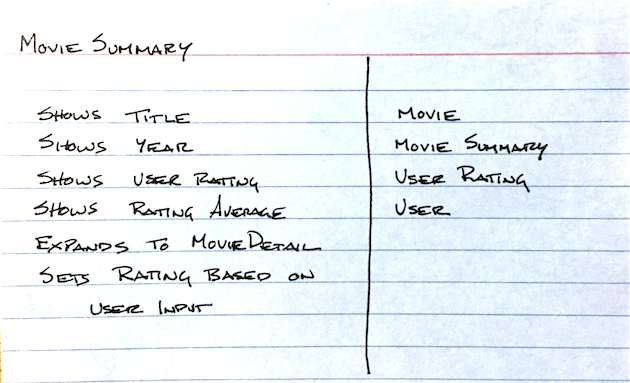 MOVIE SUMMARY
SHOWS TITLE
SHOWS YEAR
SHOWS USER RATING
SHOWS RATING AVERAGE
EXPANDS TO MOVIEDETAIL
SETS RATING BASED ON
USER INPUT
MOVIE
MOVIE SUMMARY
USER RATING
USER